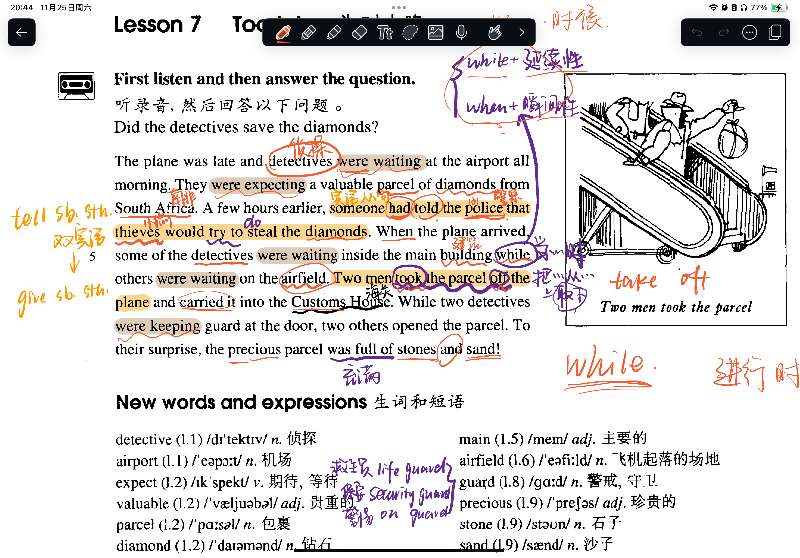 20:44 11月25日周六
77%
Lesson 7
时候.
while + 延续性
when + 瞬间性
First listen and then answer the question.
听录音, 然后回答以下问题。
Did the detectives save the diamonds?
侦探
The plane was late and detectives were waiting at the airport all
morning. They were expecting a valuable parcel of diamonds from
South Africa. A few hours earlier, someone had told the police that
thieves would try to steal the diamonds. When the plane arrived,
5
some of the detectives were waiting inside the main building while
others were waiting on the airfield. Two men took the parcel off the
plane and carried it into the Customs House. While two detectives
were keeping guard at the door, two others opened the parcel. To
their surprise, the precious parcel was full of stones and sand!
tell sb. sth.
双宾语
give sb. sth.
宾语从句
do
海关
充满
当…时
把…从…
取下
take off
Two men took the parcel
while.
进行时
New words and expressions 生词和短语
detective (l.1) /dɪ'tektɪv/ n. 侦探
airport (l.1) /'eəpɔ:t/ n. 机场
expect (l.2) /ɪk'spekt/ v. 期待, 等待
valuable (l.2) /'væljuəbəl/ adj. 贵重的
parcel (l.2) /'pɑ:səl/ n. 包裹
diamond (l.2) /'daɪəmənd/ n. 钻石
救生员 life guard
保安 security guard
on guard
main (l.5) /meɪn/ adj. 主要的
airfield (l.6) /'eəfi:ld/ n. 飞机起落的场地
guard (l.8) /gɑ:d/ n. 警戒, 守卫
precious (l.9) /'preʃəs/ adj. 珍贵的
stone (l.9) /stəʊn/ n. 石子
sand (l.9) /sænd/ n. 沙子